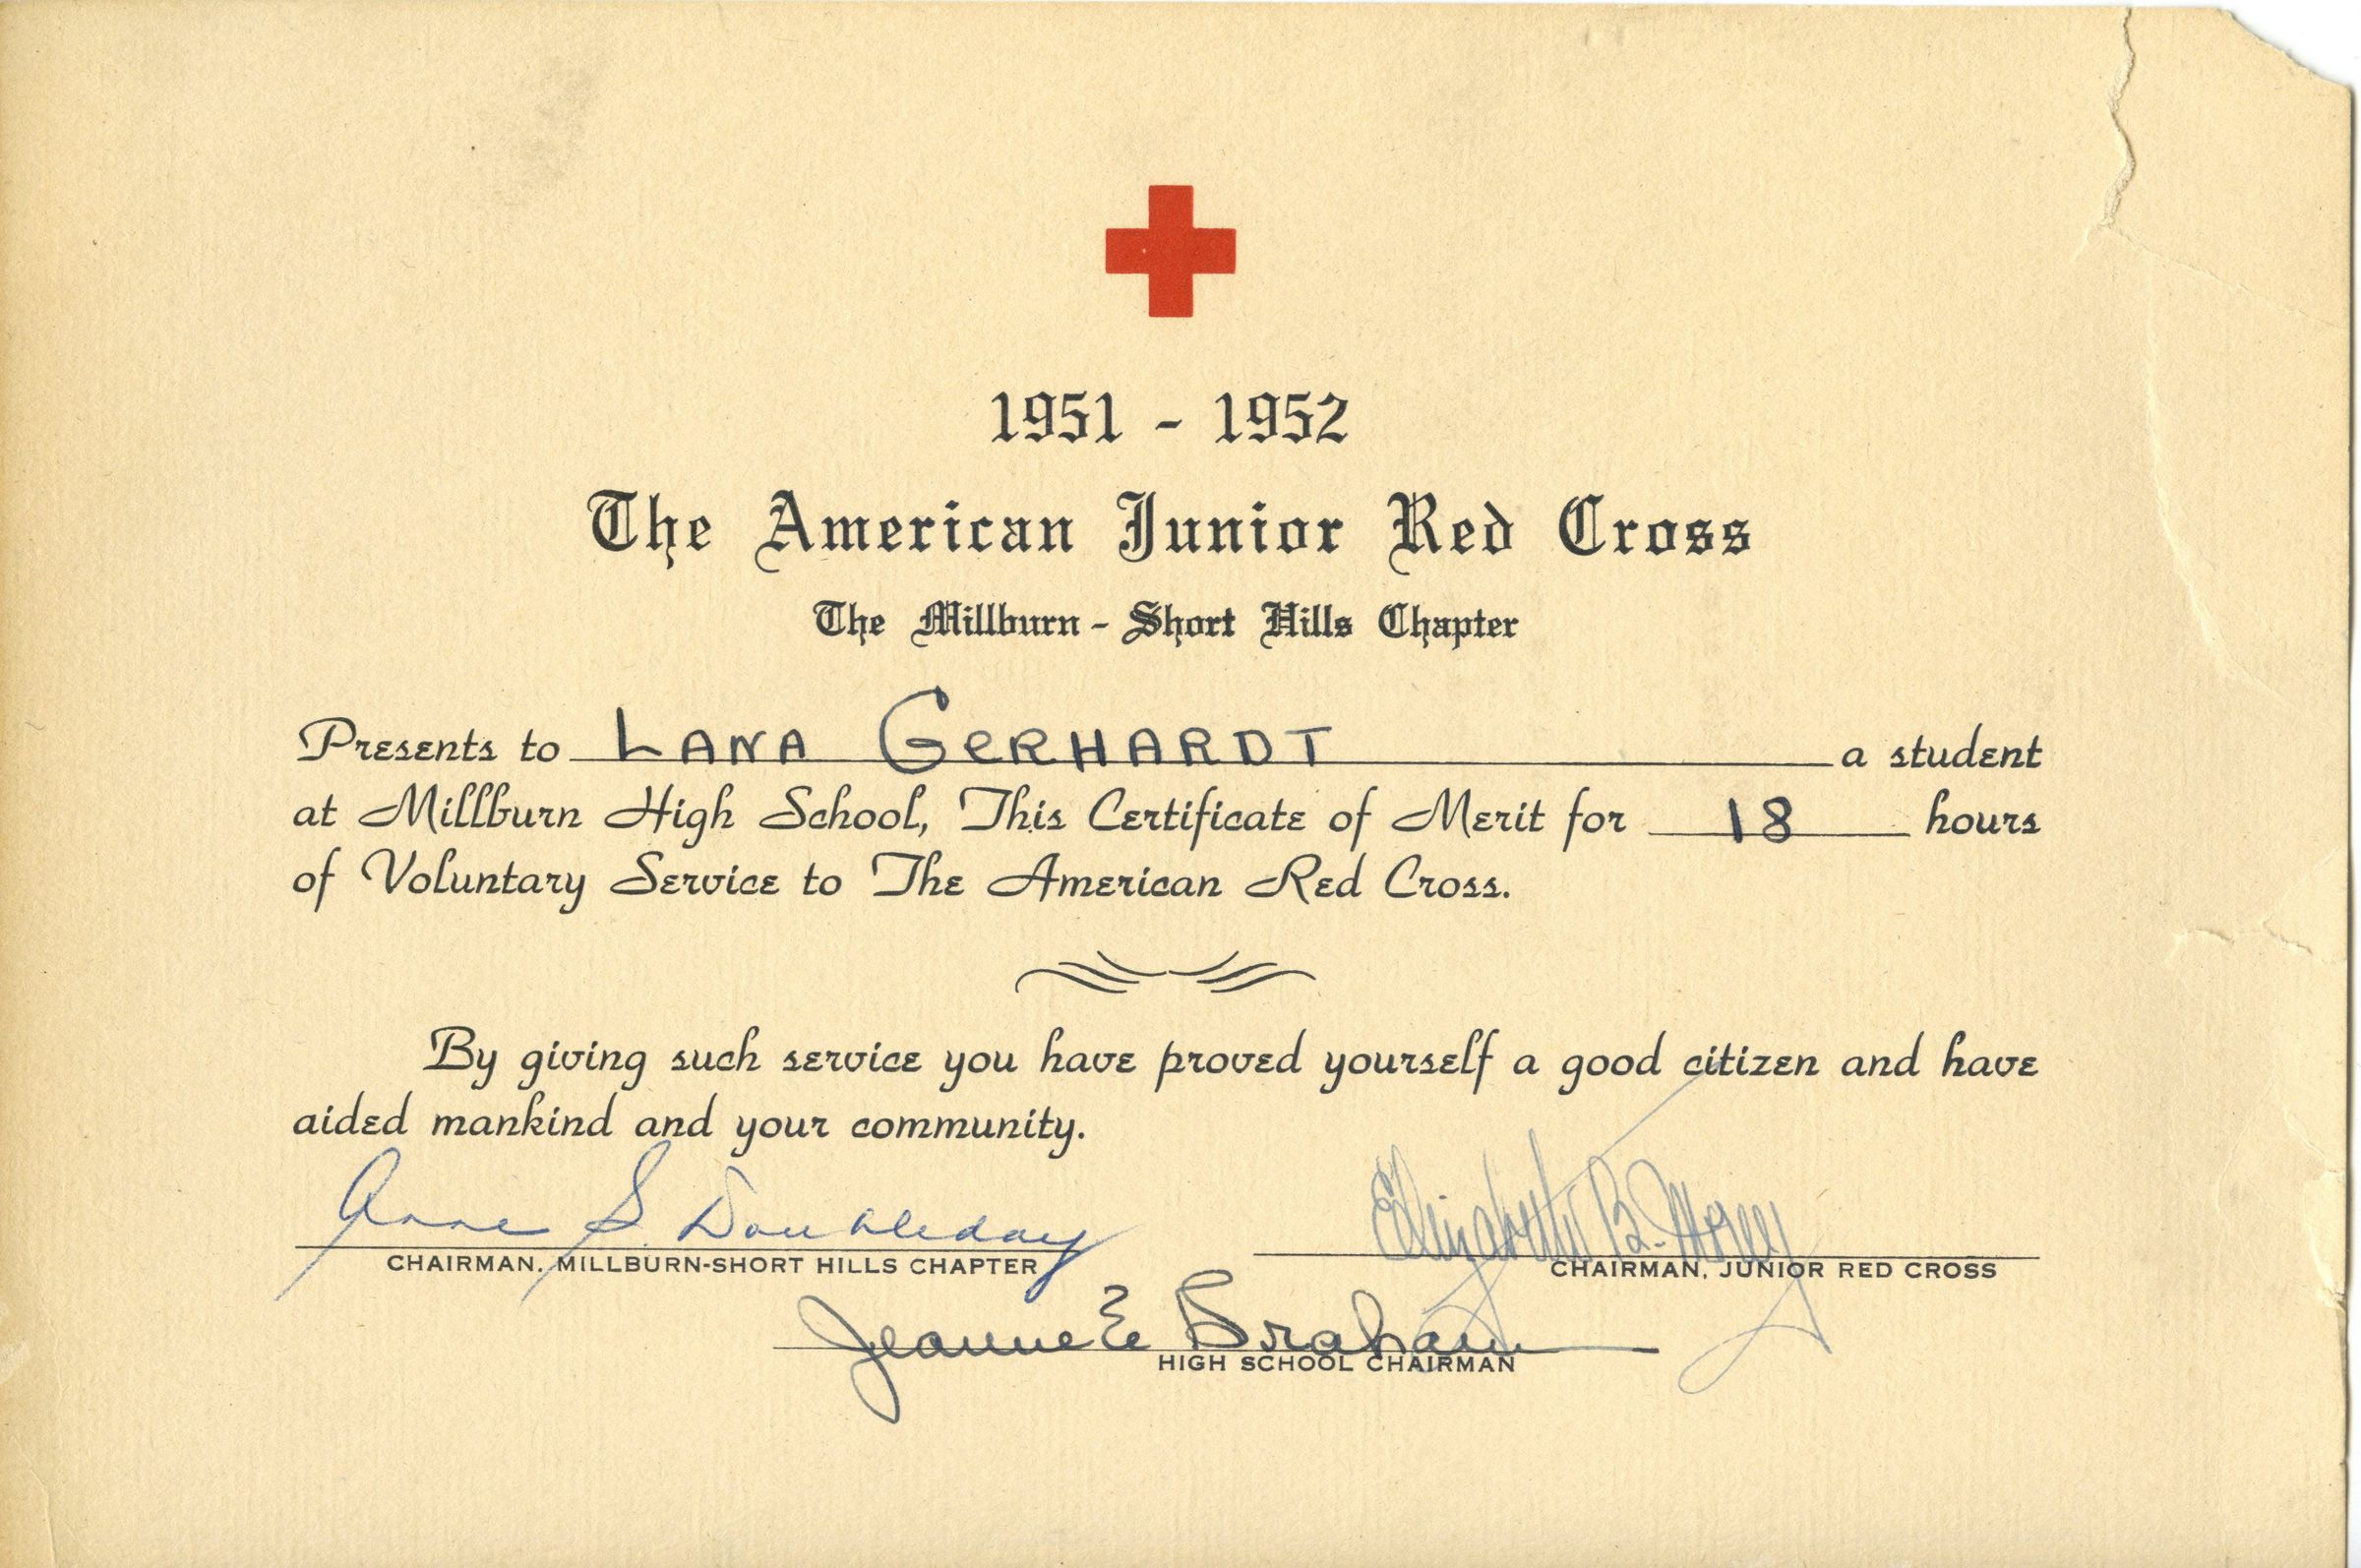 1951 - 1952
The American Junior Red Cross
The Millburn - Short Hills Chapter
Presents to LANA GERHARDT a student
at Millburn High School, This Certificate of Merit for 18 hours
of Voluntary Service to The American Red Cross.
By giving such service you have proved yourself a good citizen and have
aided mankind and your community.
Anne S. Doubleday
Elizabeth B.
CHAIRMAN, MILLBURN-SHORT HILLS CHAPTER
CHAIRMAN, JUNIOR RED CROSS
Jeanne E Braham
HIGH SCHOOL CHAIRMAN